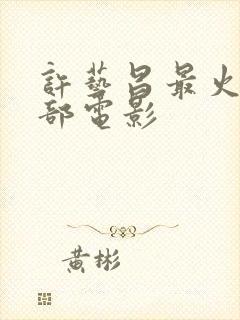 許藝昌最火
部電影
黃彬